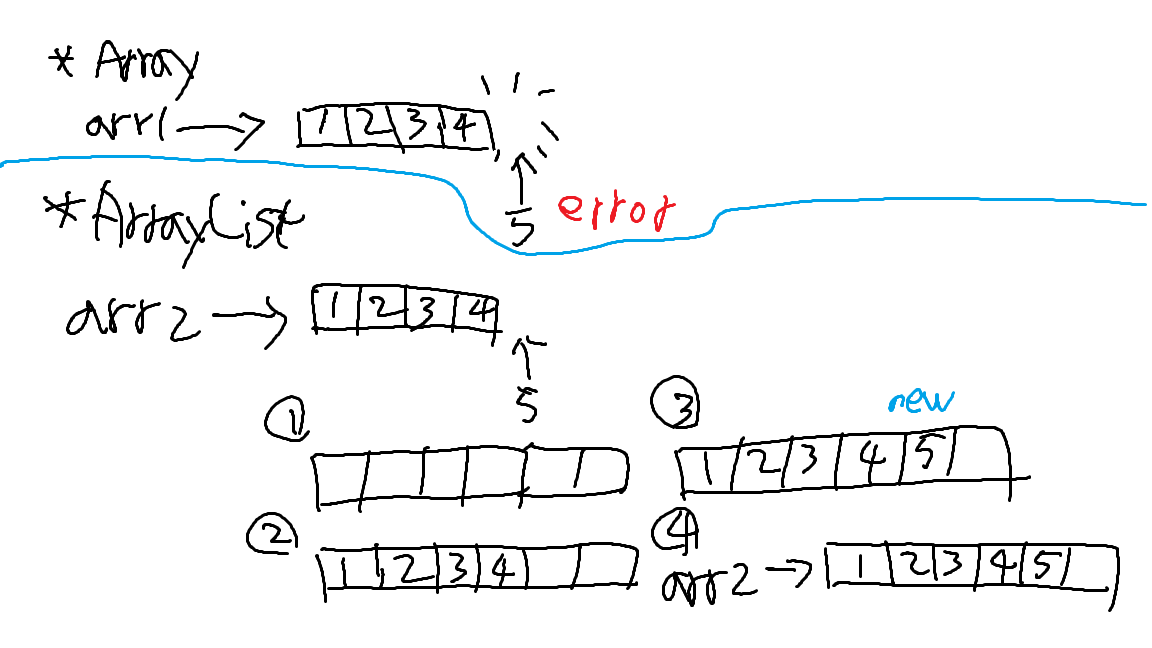 * Array
arr1 → 1 2 3 4
5 error
* ArrayList
arr2 → 1 2 3 4
5
①
② 1 2 3 4
③ new
1 2 3 4 5
④
arr2 → 1 2 3 4 5